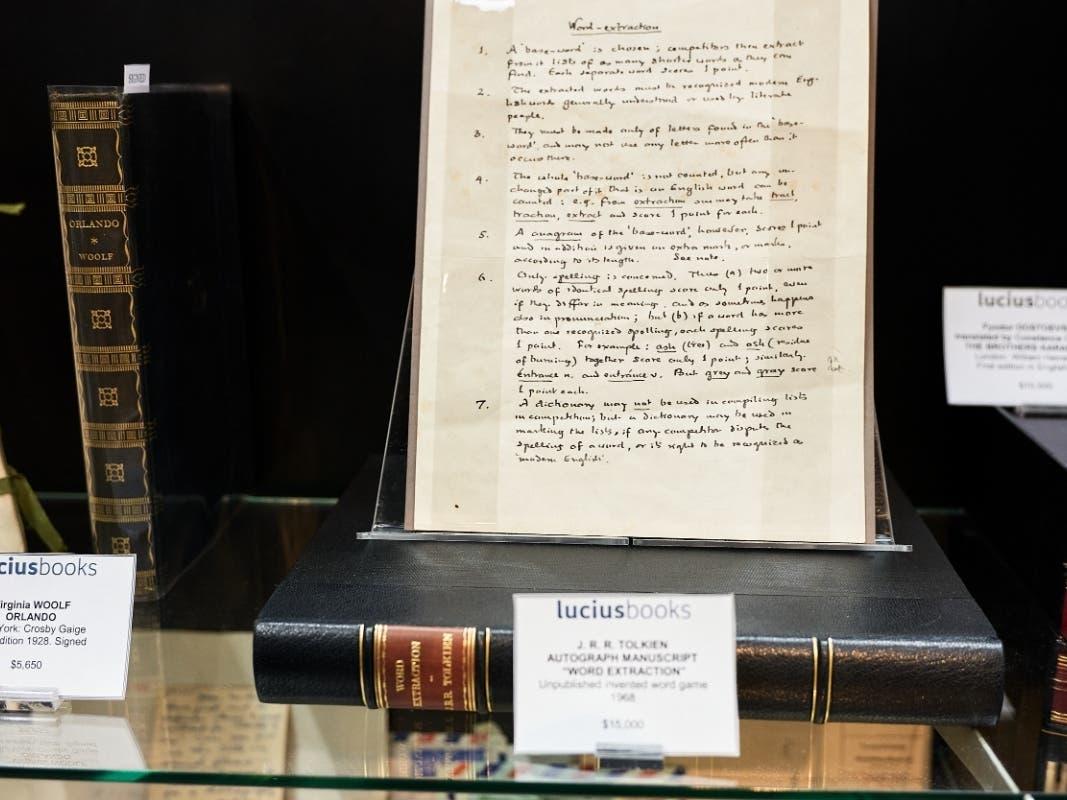 SIGNED
ORLANDO
*
WOOLF
Word-extraction
1. A 'base-word' is chosen; competitors then extract
from it lists of as many shorter words as they can
find. Each separate word scores 1 point.
2. The extracted words must be recognized modern Eng-
lish words generally understood or used by literate
people.
3. They must be made only of letters found in the 'base-
word', and may not use any letter more often than it
occurs there.
4. The whole 'base-word' is not counted, but any un-
changed part of it that is an English word can be
counted: e.g. from extraction one may take tract,
traction, extract and score 1 point for each.
5. A anagram of the 'base-word', however, scores 1 point
and in addition is given an extra mark, or marks,
according to its length. See note.
6. Only spelling is concerned. Thus (a) two or more
words of identical spelling score only 1 point, even
if they differ in meaning, and as sometimes happens
also in pronunciation; but (b) if a word has more
than one recognized spelling, each spelling scores
1 point. For example: ash (tree) and ash (residue
of burning) together score only 1 point; similarly
entrance n. and entrance v. But grey and gray score
1 point each.
7. A dictionary may not be used in compiling lists
in competition; but a dictionary may be used in
marking the lists, if any competitor disputes the
spelling of a word, or its right to be recognized as
'modern English'.
WORD
EXTRACTION
-
J.R.R. TOLKIEN
luciusbooks
J. R. R. TOLKIEN
AUTOGRAPH MANUSCRIPT
"WORD EXTRACTION"
Unpublished invented word game
1968
$15,000
ciusbooks
irginia WOOLF
ORLANDO
York: Crosby Gaige
dition 1928. Signed
$5,650
luciusboo
Fyodor DOSTOEVS
translated by Constance
THE BROTHERS KARA
London: William Heine
First edition in English